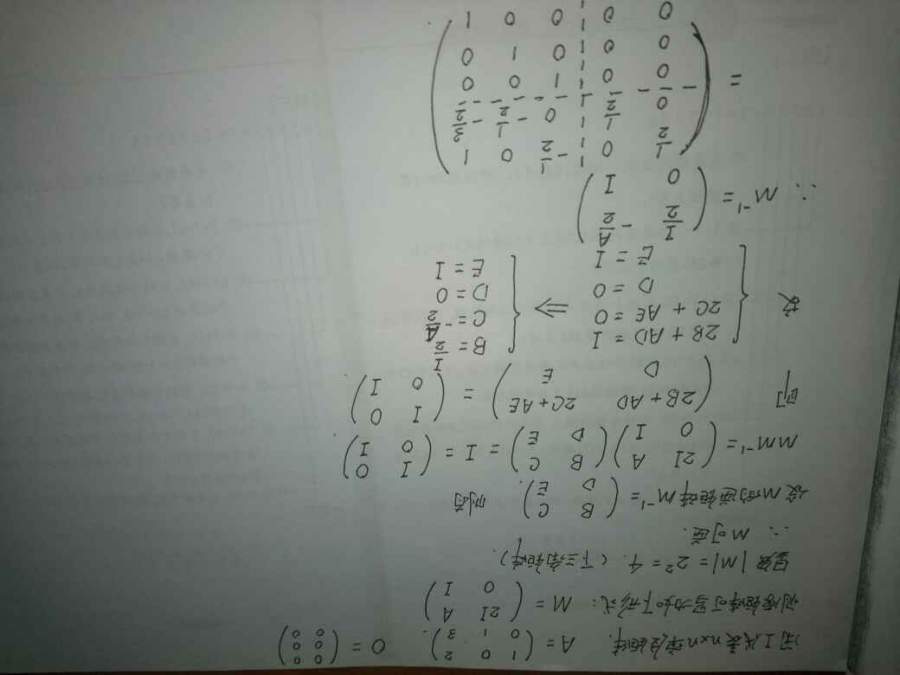 用I代表n×n单位矩阵. A = (1 0 -2; 0 1 3). O = (0 0; 0 0; 0 0)
则该矩阵可写为如下形式: M = (2I A; 0 I)
显然 |M| = 2² = 4. (下三角矩阵).
∴ M可逆.
设M的逆矩阵M⁻¹ = (B C; D E). 则有
MM⁻¹ = (2I A; 0 I)(B C; D E) = I = (I 0; 0 I)
即 (2B+AD 2C+AE; D E) = (I 0; 0 I).
故 { 2B + AD = I ⇒ { B = I/2
2C + AE = 0 C = -A/2
D = 0 D = 0
E = I E = I
∴ M⁻¹ = (I/2 -A/2; 0 I)
= (1/2 0 -1/2 0 1; 0 1/2 0 -1/2 -3/2; 0 0 1 0 0; 0 0 0 1 0; 0 0 0 0 1).